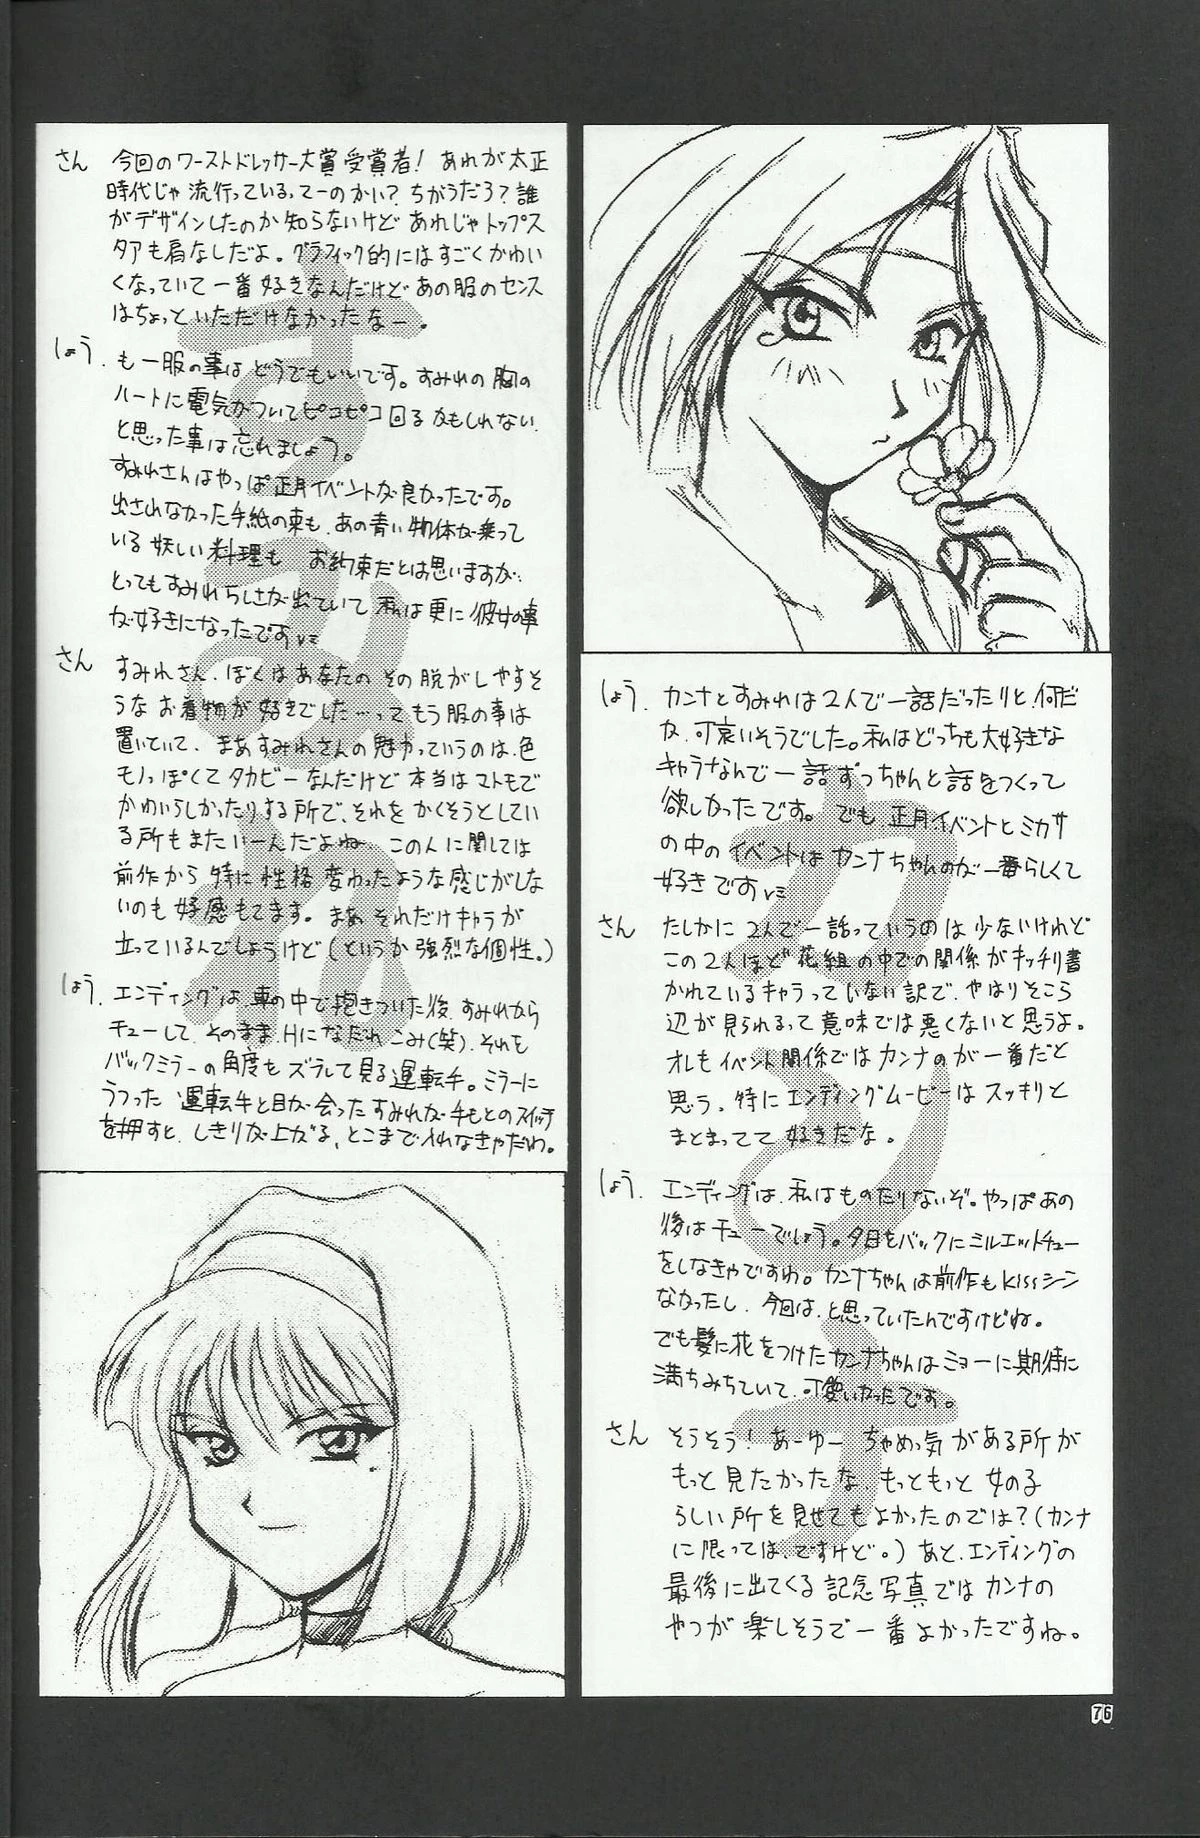 さん 今回のワーストドレッサー大賞受賞者！ あれが太正
時代じゃ流行っている、ってーのかい？ちがうだろ？誰
がデザインしたのか知らないけど あれじゃトップス
タアも肩なしだよ。グラフィック的にはすごくかわい
くなっていて一番好きなんだけど あの服のセンス
はちょっといただけなかったなー。
しょう. も一服の事は どうでもいいです。すみれの胸の
ハートに電気がついてピコピコ回るかもしれない
と思った事は忘れましょう。
すみれさんはやっぱ正月イベントが良かったです。
出されなかった手紙の束も、あの青い物体が乗って
いる妖しい料理も お約束だとは思いますが、
とってもすみれらしさが出ていて 私は更に彼女の事
が好きになったです
さん すみれさん、ぼくはあなたの その脱がしやすそ
うな お着物が 好きでした…ってもう服の事は
置いていて、まあすみれさんの魅力っていうのは、色
モノっぽくてタカビーなんだけど 本当はマトモで
かわいらしかったりする所で、それを かくそうとしてい
る所もまたいーんだよね この人に関しては
前作から 特に 性格 変わったような感じがしな
いのも 好感もてます。まあ それだけキャラが
立っているんでしょうけど（というか 強烈な個性。）
しょう. エンディングは、車の中で抱きついた後、すみれから
チューして、そのまま Hになだれこみ(笑)、それを
バックミラーの角度を ズラして見る運転手。ミラーに
うつった 運転手と目が会ったすみれが手もとのスイッチ
を押すと、しきりが上がる、とこまで入れなきゃだわ。
しょう. カンナとすみれは2人で一話だったりと、何だ
か、可哀いそうでした。私はどっちも大好きな
キャラなんで一話ずっちゃんと話をつくって
欲しかったです。でも 正月イベントとミカサ
の中のイベントはカンナちゃんのが一番らしくて
好きです
さん たしかに 2人で一話っていうのは少ないけれど
この2人ほど花組の中での関係がキッチリ書
かれているキャラっていない訳で、やはりそこら
辺が見られるって意味では悪くないと思うよ。
オレもイベント関係ではカンナのが一番だと
思う。特にエンディングムービーはスッキリと
まとまってて 好きだな。
しょう. エンディングは、私はものたりないぞ。やっぱあの
後はチューでしょう。夕日をバックにミルエットチュー
をしなきゃですわ。カンナちゃんは前作もkissシーン
なかったし、今回は、と思っていたんですけどね。
でも髪に花をつけたカンナちゃんはミョーに期待に
満ちみちていて、可愛いかったです。
さん そうそう！あーゆー ちゃめっ気がある所が
もっと見たかったな もっともっと 女の子
らしい所を見せてもよかったのでは？（カンナ
に限っては、ですけど。）あと、エンディングの
最後に出てくる記念写真ではカンナの
やつが 楽しそうで一番よかったですね。
すみれ
カンナ
76